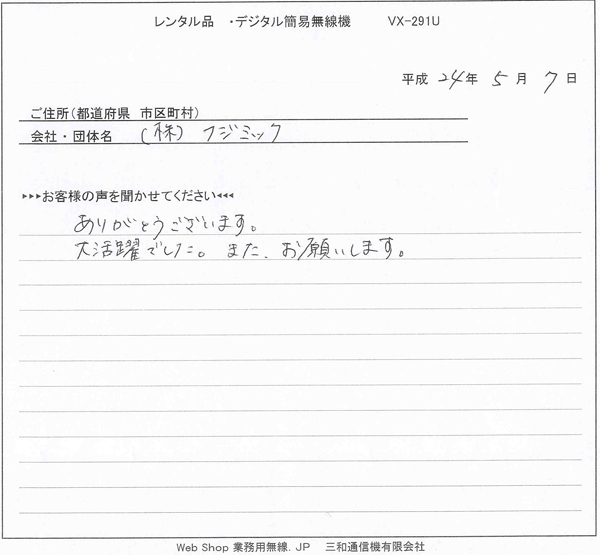 レンタル品 ・デジタル簡易無線機 VX-291U
平成 24年 5月 7日
ご住所(都道府県 市区町村)
会社・団体名 (株) フジミック
▸▸▸お客様の声を聞かせてください◂◂◂
ありがとうございます。
大活躍でした。また、お願いします。
Web Shop 業務用無線.JP 三和通信機有限会社